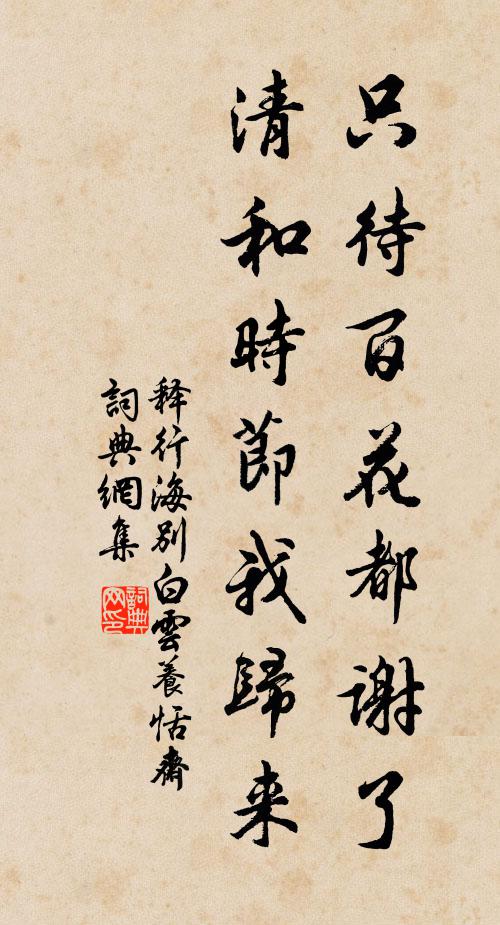 只待百花都谢了
清和時節我歸来
释行海別白雲養恬齋
詞典網集
詞典
网印